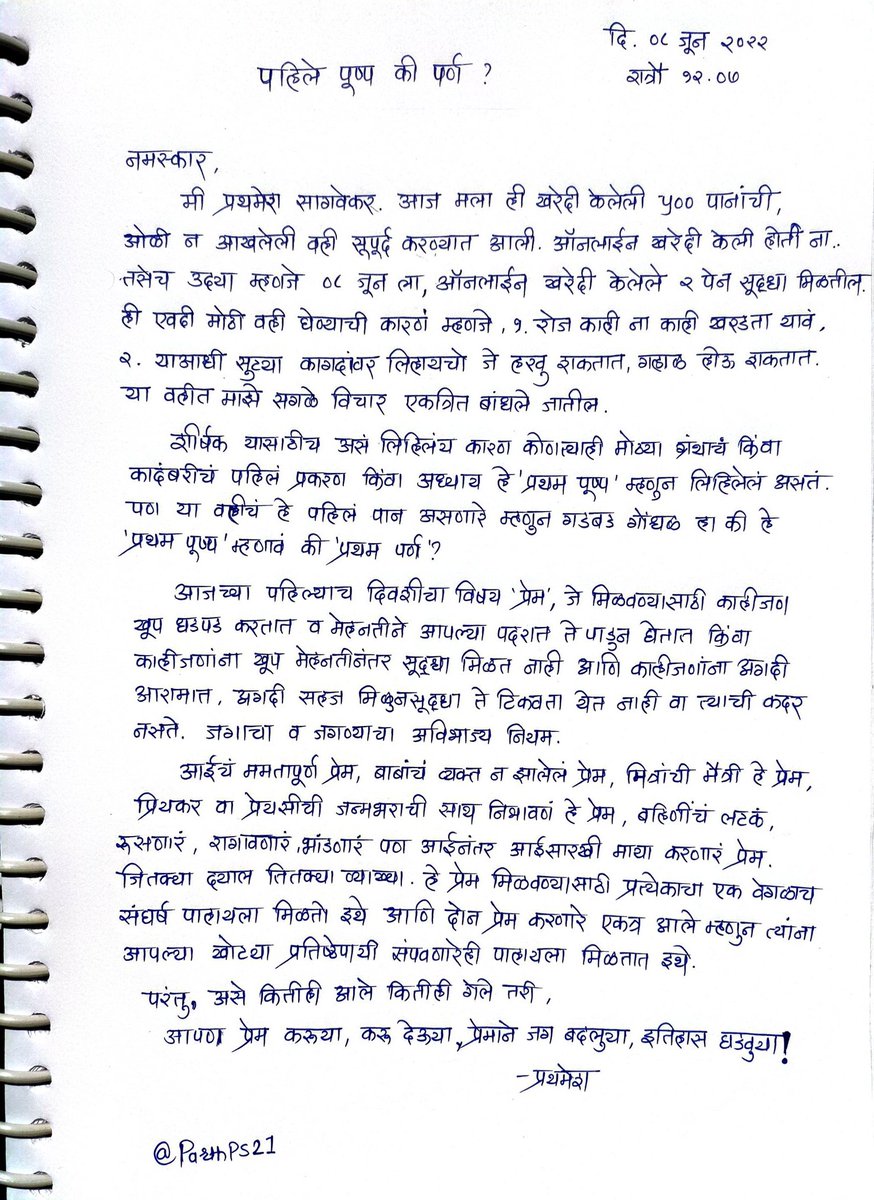 दि. ०८ जून २०२२
रात्रौ १२.०७
पहिले पूष्प की पर्ण ?
नमस्कार,
मी प्रथमेश सागवेकर. आज मला ही खरेदी केलेली ५०० पानांची,
ओळी न आखलेली वही सूपूर्द करण्यात आली. ऑनलाईन खरेदी केली होती ना..
तसेच उद्या म्हणजे ०८ जून ला, ऑनलाईन खरेदी केलेले २ पेन सूद्धा मिळतील.
ही एवढी मोठी वही घेण्याची कारणं म्हणजे, १. रोज काही ना काही खरडता यावं,
२. याआधी सुट्या कागदांवर लिहायचो जे हरवु शकतात, गहाळ होऊ शकतात.
या वहीत माझे सगळे विचार एकत्रित बांधले जातील.
शीर्षक यासाठीच असं लिहिलंय कारण कोणत्याही मोठ्या ग्रंथाचं किंवा
कादंबरीचं पहिलं प्रकरण किंवा अध्याय हे 'प्रथम पूष्प' म्हणुन लिहिलेलं असतं.
पण या वहीचं हे पहिलं पान असणारे म्हणुन गडबड गोंधळ हा की हे
'प्रथम पूष्प' म्हणावं की 'प्रथम पर्ण'?
आजच्या पहिल्याच दिवशीचा विषय 'प्रेम', जे मिळवण्यासाठी काहीजण
खूप धडपड करतात व मेहनतीने आपल्या पदरात ते पाडुन घेतात किंवा
काहीजणांना खूप मेहनतीनंतर सूद्धा मिळत नाही आणि काहीजणांना अगदी
आरामात, अगदी सहज मिळुनसूद्धा ते टिकवता येत नाही वा त्याची कदर
नसते. जगाचा व जगण्याचा अविभाज्य नियम.
आईचं ममतापूर्ण प्रेम, बाबांचं व्यक्त न झालेलं प्रेम, मित्रांची मैत्री हे प्रेम,
प्रियकर वा प्रेयसीची जन्मभराची साथ निभावणं हे प्रेम, बहिणींचं लटकं,
रुसणारं, रागावणारं, भांडणारं पण आईनंतर आईसारखी माया करणारं प्रेम.
जितक्या द्याल तितक्या व्याख्या. हे प्रेम मिळवण्यासाठी प्रत्येकाचा एक वेगळाच
संघर्ष पाहायला मिळतो इथे आणि दोन प्रेम करणारे एकत्र आले म्हणुन त्यांना
आपल्या खोट्या प्रतिष्ठेपायी संपवणारेही पाहायला मिळतात इथे.
परंतु, असे कितीही आले कितीही गेले तरी,
आपण प्रेम करूया, करू देऊया, प्रेमाने जग बदलुया, इतिहास घडवुया!
-प्रथमेश
@ParthPS21